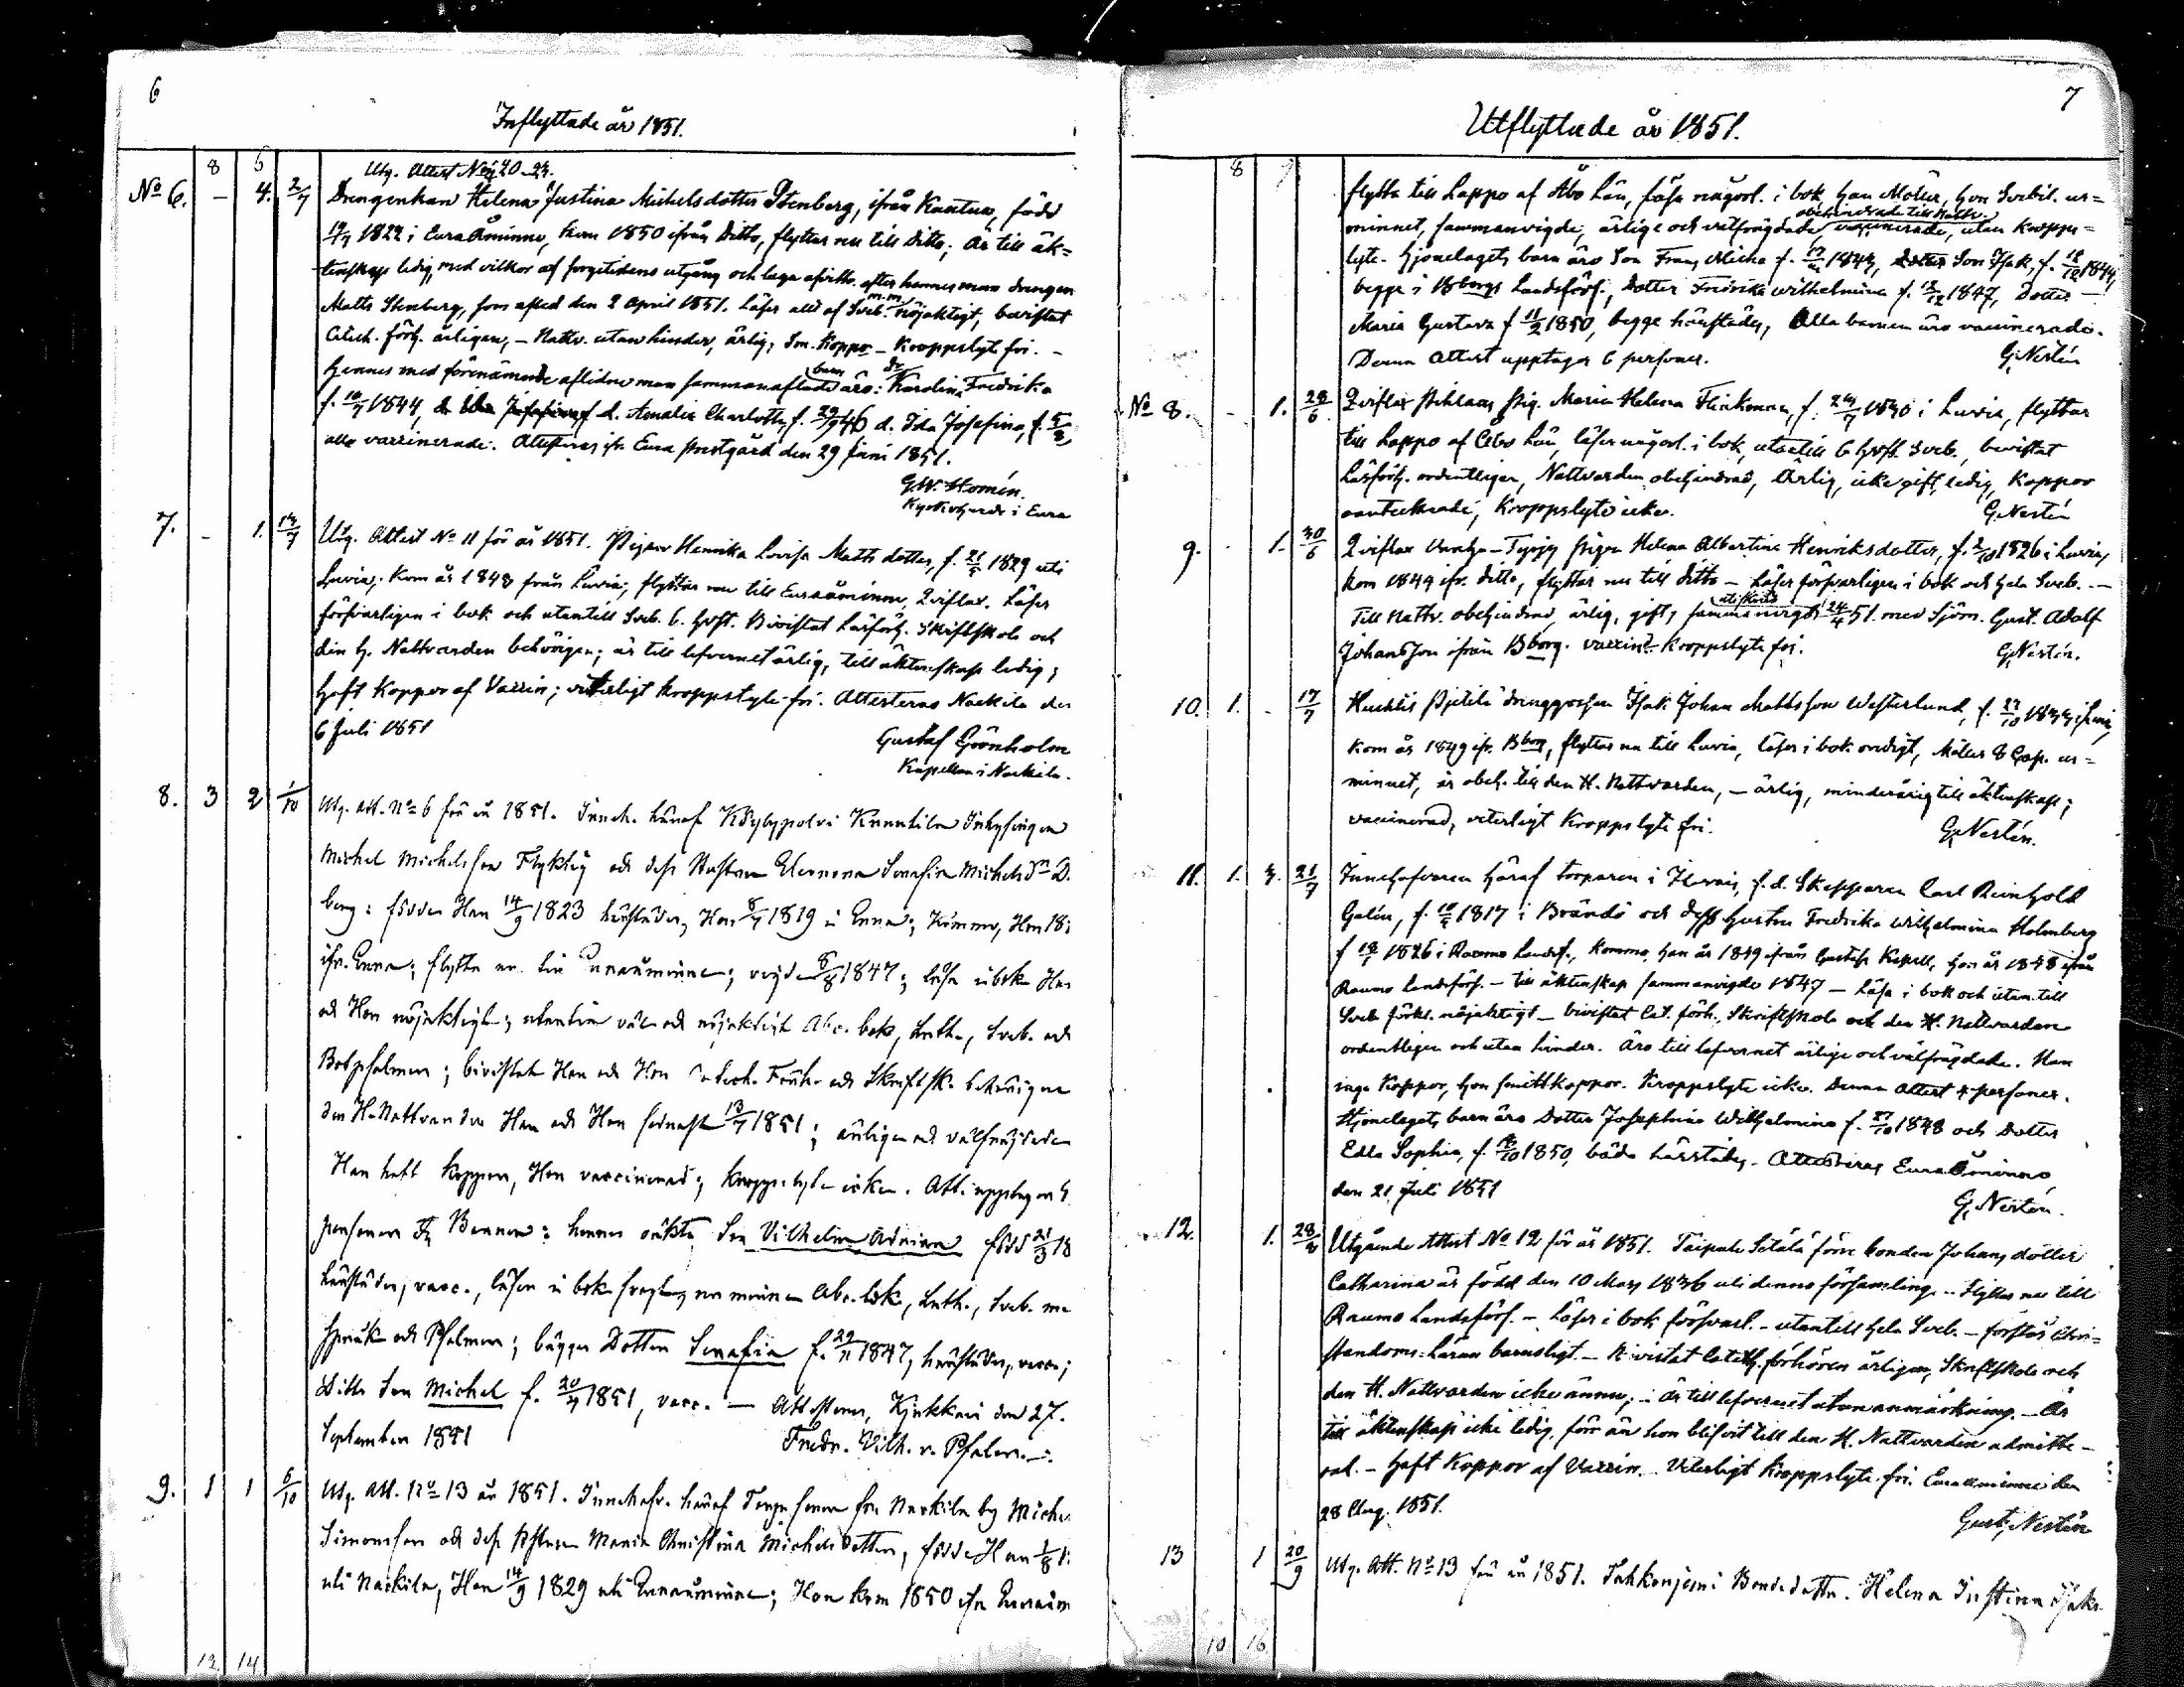 6
Inflyttade år 1851.
8 5
Utg. Attest No 20
No 6. – 4. 2/7 Drengenkan Helena Justina Michelsdotter Stenberg, ifrån Kauttua, född
1822 i Eura Åminne, kom 1850 ifrån Ditto, flyttar nu till Ditto; Är till äk=
tenskap ledig, med vilkor af sorgetidens utgång och laga afvittr. efter hennes man drengen
Matts Stenberg, som afled den 2 April 1851. Läser allt af Sveb. m.m. nöjaktigt, bevistat
Catech. förh. årligen, – Nattv. utan hinder, ärlig, Sm. Koppor – Kroppslyte fri. –
Hennes med förenämnde aflidne man sammanaflade barn äro: dr Karolina Fredrika
f. 10/7 1844, d. Amalia Charlotta, f. 29/9 46 d. Ida Josefina, f.
alla vaccinerade. Attesteras fr. Eura Prestgård den 29 Juni 1851.
G.W. Homén.
Kyrkoherde i Eura
7. – 1. 13/7 Utg. Attest No 11 för år 1851. Pigan Henrika Lovisa Matts dotter, f. 1829 uti
Luvia, kom år 1843 från Luvia, flyttar nu till Euraåminne, Qviflax. Läser
försvarligen i bok och utantill Sveb. b. Hvft. Bivistat Läsförh. Skriftskola och
den H. Nattvarden behörigen; är till lefvernet ärlig, till äktenskap ledig;
haft Koppor af Vaccin; veterligt kroppslyte fri. Attesteras Nackila den
6 Juli 1851
Gustaf Grönholm
Kapellan i Nackila.
8. 3 2 1/10 Utg. att. No 6 för år 1851. Inneh. häraf Inhysingen
Michel Michelsson och dess Hustru Eleonora Serafia Michels
berg: födde Han 14/9 1823 härstädes, Hon 8/7 1819 i Eura; Komme, Hon
ifr. Eura; flytta nu till Euraåminne; vigde 1847; läsa i bok Han
och Hon nöjaktigt; utantill väl och nöjaktigt Abc. bok, Luth., Sveb. och
Botpsalmen; bivistat Han och Hon Catech. Förh. och Skriftsk. behörigen
den H. Nattvarden Han och Hon sednast 13/7 1851; ärlige och välfrejdade
Han haft koppor, Hon vaccinerad; kroppslyte icke. Att. upptager 5
personer Barnen: hennes oäkta Son Vilhelm Adrian född 21/3 18
härstädes, vacc., läser i bok Abc. bok, Luth., Sveb. m
språk och Psalmen; bägges Dotter Serafia f. 29/11 1847, härstädes, vacc.;
Ditto Son Michel f. 20/7 1851, vacc. — Attesteras, Kjukkais den 27.
September 1851
Fredr. Vilh. v. Pfaler.
9. 1 1 6/10 Utg. Att. No 13 år 1851. Innehafv. häraf fr. Nackila by Miche
Simonsson och dess Hustru Maria Christina Michelsdotter, födde Han 1/8
uti Nackila, Hon 14/9 1829 uti Euraåminne; Hon kom 1850 ifr. Euraåm
12 14
7
Utflyttade år 1851.
8 7
flytta till Lappo af Åbo Län, läsa någorl. i bok, han Möller, hon Svebil. ur=
minnet, sammanvigde, ärlige och välfrejdade obehindrade till Nattv. vaccinerade, utan kropps=
lyte. Hjonelagets barn äro Son Frans Micha f. 1843, Son Isak, f. 1844,
begge i Bborgs Landsförs., Dotter Fredrika Wilhelmina f. 1847, Dotter
Maria Gustava f. 11/2 1850, begge härstädes, Alla barnen äro vaccinerade.
Denna Attest upptager 6 personer.
G. Nestén
No 8. – 1. 28/6 Qviflax Pig. Maria Helena Flinkman, f. 24/7 1830 i Luvia, flyttar
till Lappo af Åbo Län, läser någorl. i bok, utantill 6 Hvft. Sveb., bevistat
Läsförh. ordentligen, Nattvarden obehindrad, Ärlig, icke gift, ledig, Koppor
oantecknade, Kroppslyte icke.
G. Nestén
9. 1. 30/6 Qviflax Pigan Helena Albertina Henriksdotter, f. 2/10 1826 i Luvia,
kom 1849 ifr. ditto, flyttar nu till ditto – Läser försvarligen i bok och hela Sveb. –
Till Nattv. obehindrad, ärlig, gift, sammanvigd 24/4 51. med Sjöm. Gust. Adolf
Johansson ifrån Bborg. vaccind. Kroppslyte fri.
G. Nestén.
10. 1. – 17/7 drenggossen Isak Johan Mattsson Westerlund, f. 27/10
kom år 1849 ifr. Bborg, flyttar nu till Luvia, läser i bok ordigt, Möller 8 Cap. ur=
minnet, är obeh. till den H. Nattvarden, – ärlig, minderårig till äktenskap;
vaccinerad, veterligt kroppslyte fri.
G. Nestén.
11. 1. 3. 21/7 Innehafvaren häraf torparen i f. d. Skepparen Carl Reinhold
Galén, f. 1817 i Brändö och dess hustru Fredrika Wilhelmina Holmberg
f 18/1 1826 i Raumo Landsf., Komme, han år 1849 ifrån Gustafs Kapell, hon år 1848 ifrån
Raumo Landsförs. – till äktenskap sammanvigde 1847 – Läsa i bok och utan till
Sveb. förkl. nöjaktigt – bivistat Cat. förh., Skriftskola och den H. Nattvarden
ordentligen och utan hinder. Äro till lefvernet ärlige och välfrägdade. Han
inga Koppor, hon smittkoppor. Kroppslyte icke. Denna Attest 4 personer.
Hjonelagets barn äro Dotter Josephina Wilhelmina f. 27/10 1848 och Dotter
Edla Sophia, f. 1850, båda härstädes. Attesteras EuraÅminne
den 21 Juli 1851
G. Nestén.
12. 1. 28/8 Utgående Attest No 12 för år 1851. Taipale Setälä förre bonden Johans dotter
Catharina är född den 10 Mars 1836 uti denna församling. – Flyttar nu till
Raumo Landsförs. – Läser i bok försvarl. – utantill hela Sveb. – förstår Chri=
stendoms-Läran barnsligt. – Bivistat Catech. förhören årligen, Skriftskola och
den H. Nattvarden icke ännu; – är till lefvernet utan anmärkning. – Är
till äktenskap icke ledig, förr än hon blifvit till den H. Nattvarden admitte=
rad. – Haft Koppor af Vaccin. Veterligt kroppslyte fri. Euraåminne den
28 Aug. 1851.
Gust. Nestén
13 1 20/9 Utg. Att. No 13 för år 1851. Bondedottr. Helena Justina Isaks
10 16